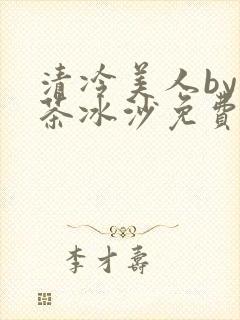 清冷美人by
茶冰沙免費
李才壽